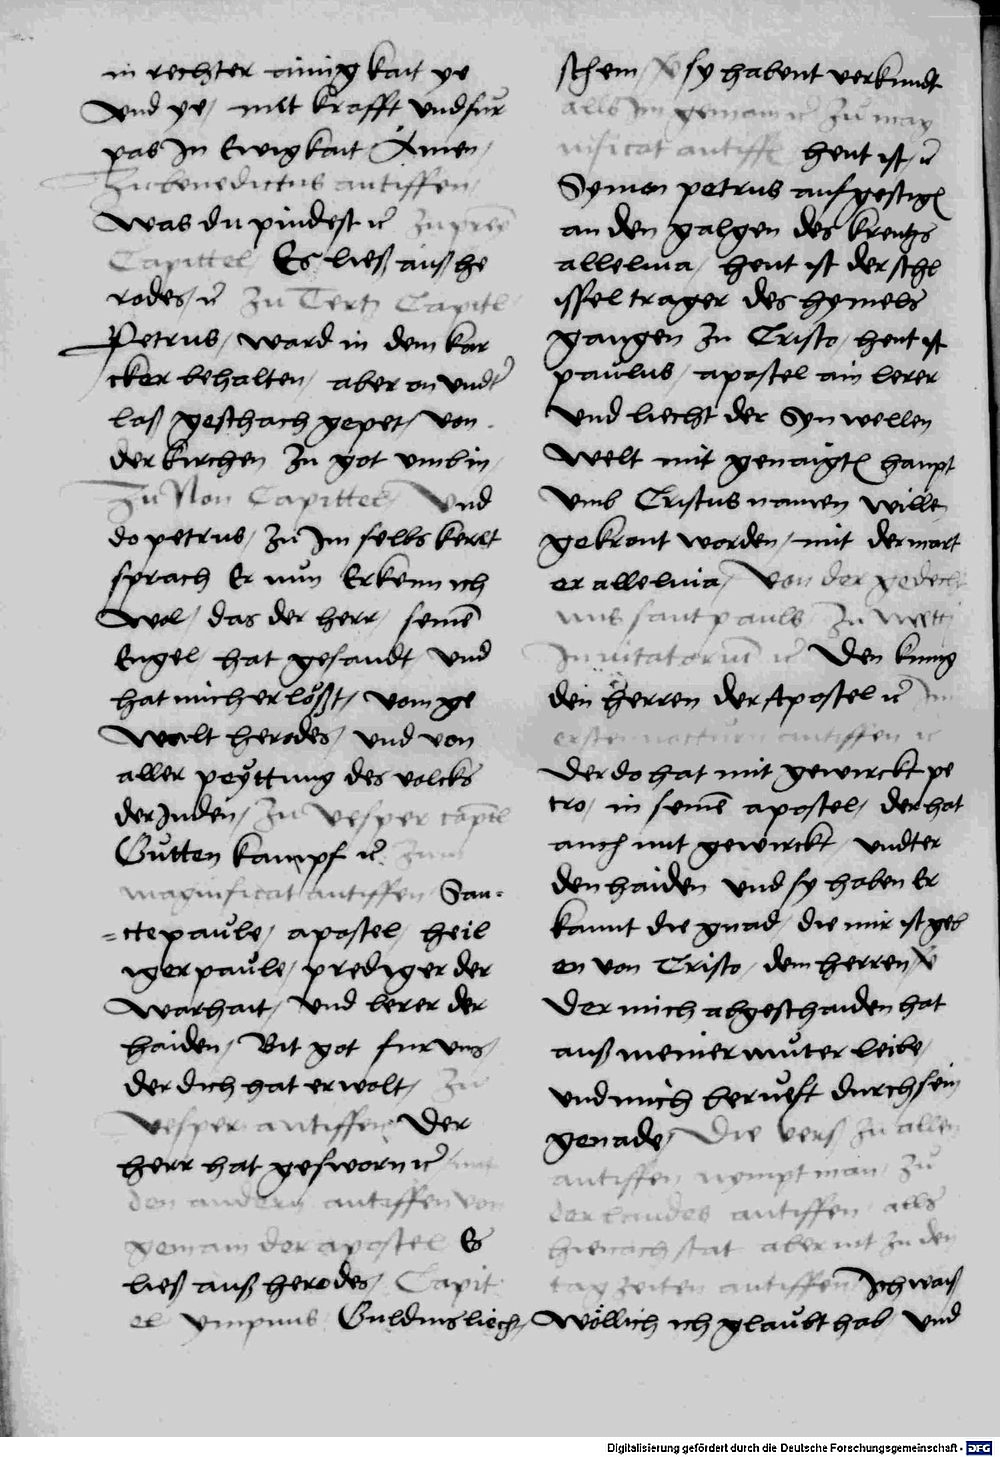 in rechter ainigkait ye
vnd ye / mit krafft vnd fur
pas In Ewigkait Amen /
Zu benedictus antiffen /
Was du pindest zc Zu prim
Capittel Es ließ auß he
rodes / zc Zu Tertz Capitl
Petrus / ward in dem kar
cker behalten / aber on vndt
laß geschach gepet / von
der kirchen zu got vmb in /
Zu Non Capittel / Vnd
do petrus / zu Im selbs kertt
sprach Er nun Erkenn ich
Wol / das der herr / seinen
Engel / hat gesandt vnd
hat mich erlößt / vom ge
Walt herodes / vnd von
aller peyttung des volcks
der Juden / Zu Vesper capitl
Gutten kampf zc Zum
magnificat antiffen San-
=cte paule / apostel / heil
iger paule / prediger der
Warhait / vnd lerer der
haiden / Bit got fur vns /
der dich hat erwolt / Zu
Vesper antiffen Der
herr hat gesworn zc / mit
den andern antiffen von
gemain der apostel Es
ließ auß herodes / Capit
el Ympnus Guldins liech /
schem / sy habent verkundt
alls Im gemain zc Zu mag
nificat antiffen hewt ist / zc
Symon petrus auf gestigen
an den galgen des krewtzs
alleluia / hewt ist der schl
issel trager des hymels
gangen zu Cristo / hewt ist
paulus / apostel ain lerer
vnd liecht der Synwellen
Welt mit genaigten haupt
vmb Cristus namen wille
gekront worden / mit der mart
er alleluia / Von der gedech
nus sant pauls Zu Mettn
Inuitatorium zc Den kunig
den herren der Apostel zc Im
ersten nocturn antiffen zc
Der do hat mit gewirckt pe
tro / in seinem apostel / der hat
auch mit gewirckt / vndter
den haiden vnd sy haben Er
kannt die gnad / die mir ist geb
en von Cristo / dem herren / v
Der mich abgeschaiden hat
auß meiner muter leibe /
vnd mich berueft durch sein
genade / Die verß zu allen
antiffen nympt man / zu
der laudes antiffen / alls
hienach stat aber nit zu den
tag zeiten antiffen Ich waiß
Wöllich ich glaubt hab vnd
Digitalisierung gefördert durch die Deutsche Forschungsgemeinschaft - DFG